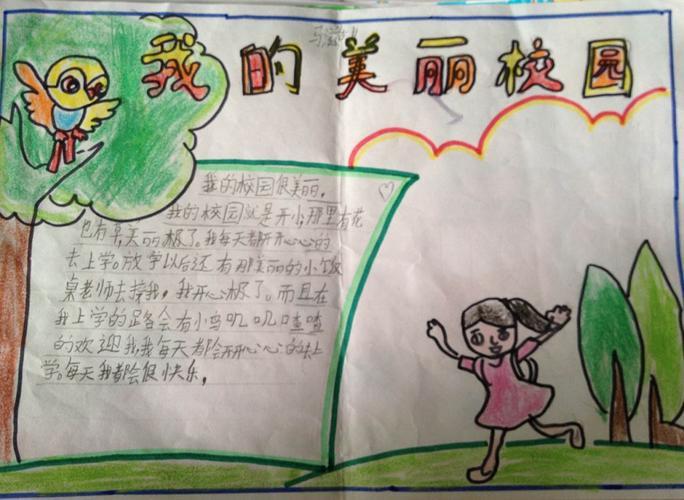 我的美丽校园
我的校园很美丽。
我的校园就是开小，那里有花
也有草，美丽极了。我每天都开开心心的
去上学。放学以后还有那美丽的小饭
桌老师去接我，我开心极了。而且在
我上学的路会有小鸟叽叽喳喳
的欢迎我，我每天都会开开心心的去上
学。每天我都会很快乐。